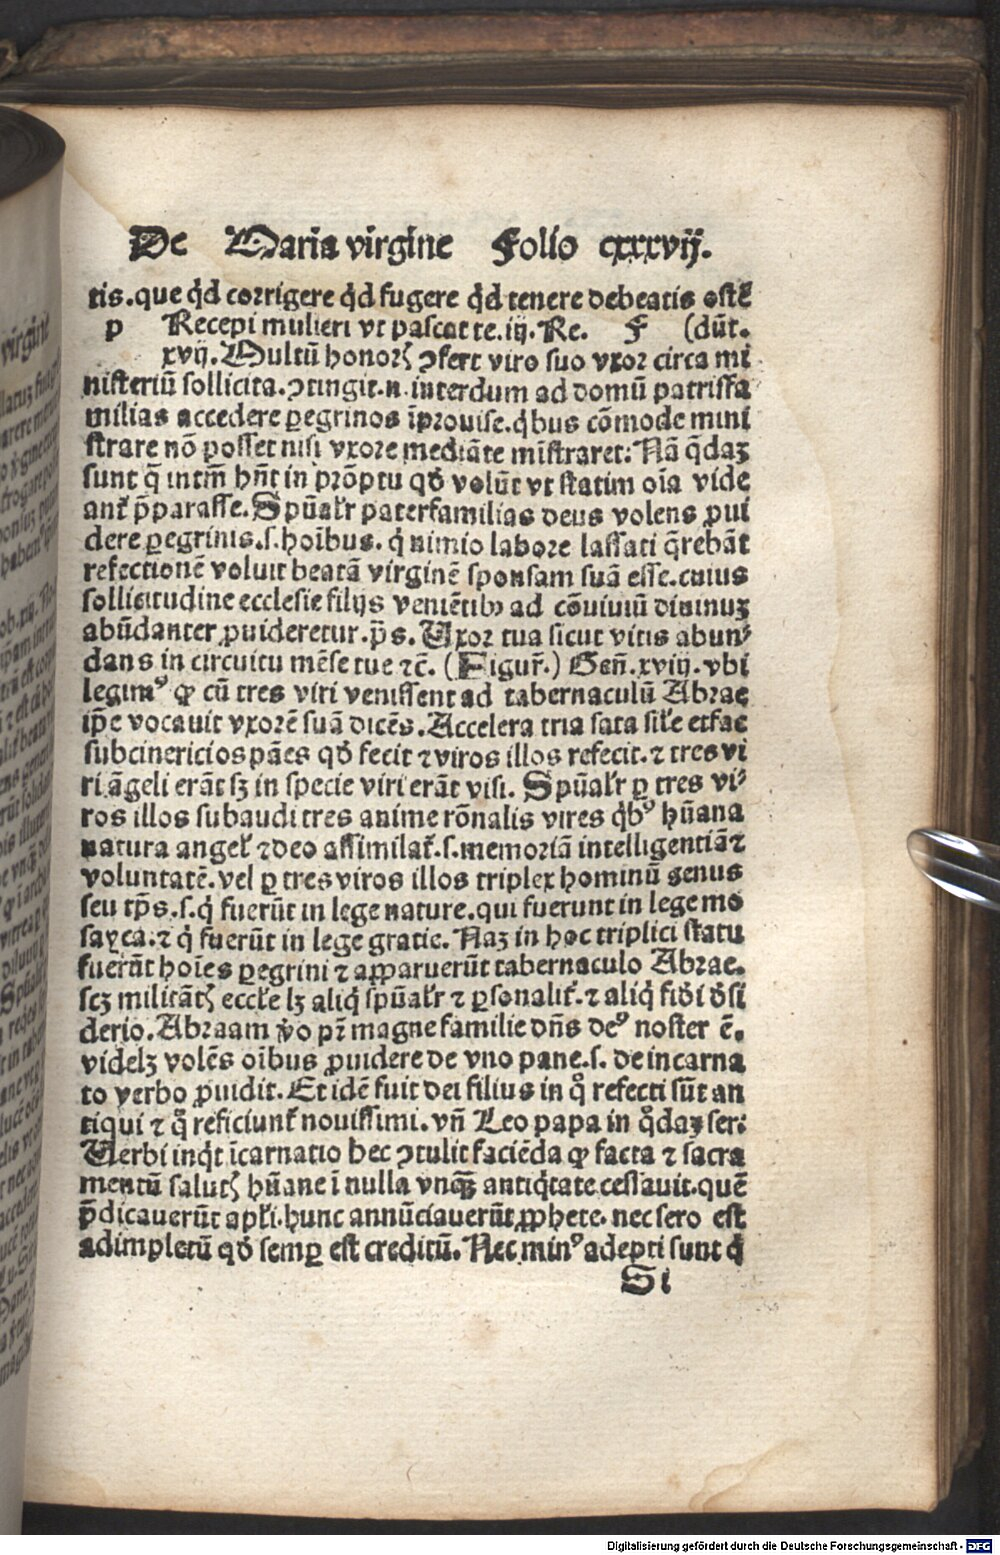 De Maria virgine Folio cxxxvij.
tis. que qͥd corrigere qͥd fugere qͥd tenere debeatis ostẽ
P Recepi mulieri vt pascat te. iij. Re. F (dũt.
xvij. Multũ honorꝭ ꝯfert viro suo vxor circa mi
nisteriũ sollicita. ꝯtingit. n. interdum ad domũ patrisfa
milias accedere ꝑegrinos ĩprouise. qͥbus cõmode mini
strare nõ posset nisi vxore mediãte mĩstraret: Nã qͥdaꝫ
sunt q̃ intm̃ hñt in prõptu qđ volũt vt statim oĩa vide
ant᷑ p̃parasse. Spũalr̃ paterfamilias deus volens ꝓui
dere ꝑegrinis. s. hoĩbus. qͥ nimio labore lassati q̃rebãt
refectionẽ voluit beatã virginẽ sponsam suã esse. cuius
sollicitudine ecclesie filijs veniẽtibꝰ ad cõuiuiũ diuinuꝫ
abũdanter ꝓuideretur. p̃s. Uxor tua sicut vitis abun⸗
dans in circuitu mẽse tue ⁊c̃. (Figur̃.) Geñ. xviij. vbi
legimꝰ ꝙ cũ tres viri venissent ad tabernaculũ Abrae
ip̃e vocauit vxorẽ suã dicẽs. Accelera tria sata sil̃e et fac
subcinericios pães qđ fecit ⁊ viros illos refecit. ⁊ tres vi
ri ãgeli erãt sꝫ in specie viri erãt visi. Spũalr̃ ꝑ tres vi⸗
ros illos subaudi tres anime rõnalis vires qͥbꝰ hũana
natura angel̃ ⁊ deo assimilat᷑. s. memoriã intelligentiã ⁊
voluntatẽ. vel ꝑ tres viros illos triplex hominũ genus
seu tp̃s. s. qͥ fuerũt in lege nature. qui fuerunt in lege mo
sayca. ⁊ qͥ fuerũt in lege gratie. Naꝫ in hoc triplici statu
fuerũt hoĩes ꝑegrini ⁊ apparuerũt tabernaculo Abrae.
scꝫ militãtꝭ eccl̃e lꝫ aliqͥ spũalr̃ ⁊ ꝑsonalit᷑. ⁊ aliqͥ fiđi đsi
derio. Abraam ṽo pr̃ magne familie dñs deꝰ noster ẽ.
videlꝫ volẽs oĩbus ꝓuidere de vno pane. s. de incarna
to verbo ꝓuidit. Et idẽ fuit dei filius in qͦ refecti sũt an
tiqui ⁊ qͦ reficiunt᷑ nouissimi. vñ Leo papa in qͦdaꝫ ser:
Uerbi inqͥt ĩcarnatio hec ꝯtulit faciẽda ꝙ facta ⁊ sacra
mentũ salutꝭ hũane ĩ nulla vnqͣꝫ antiqͥtate cessauit. quẽ
p̃dicauerũt apl̃i. hunc annũciauerũt ꝓphete. nec sero est
adimpletũ qđ semꝑ est creditũ. Nec minꝰ adepti sunt qͥ
Si
Digitalisierung gefördert durch die Deutsche Forschungsgemeinschaft - DFG